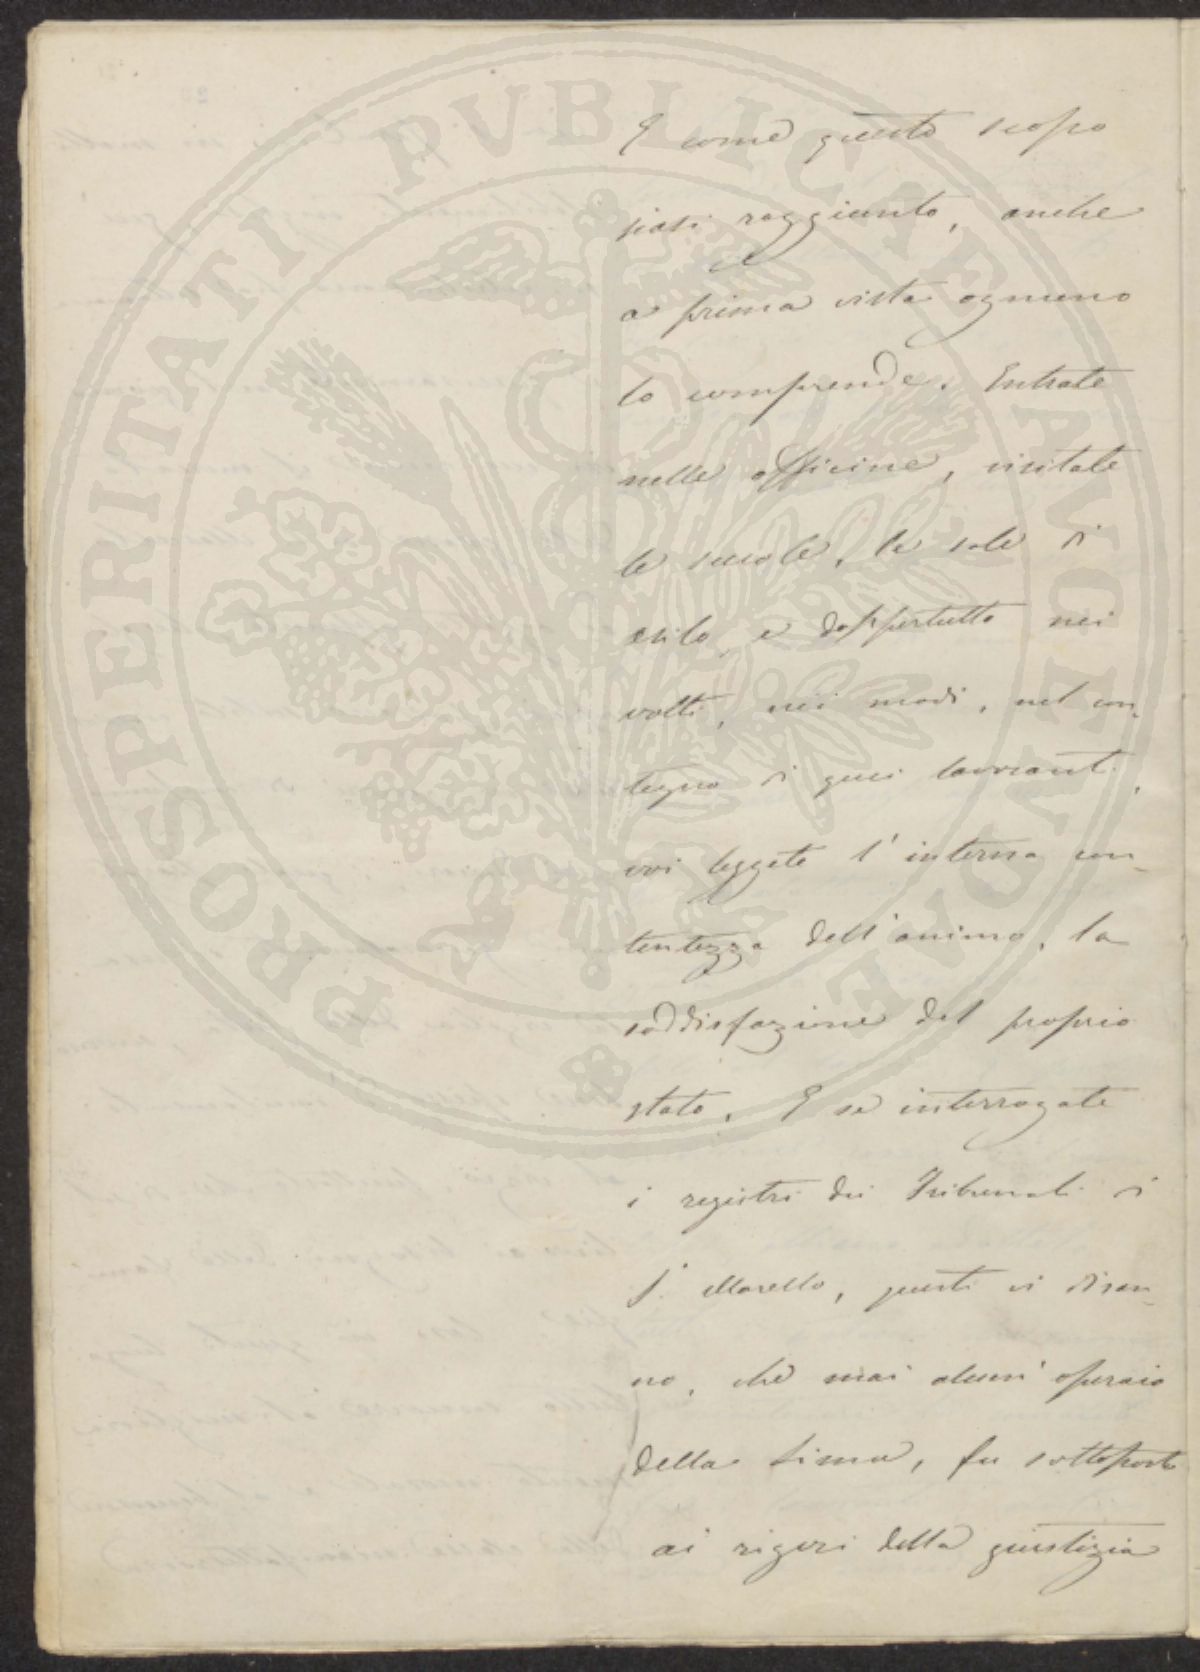 E come questo scopo
siasi raggiunto, anche
a prima vista ognuno
lo comprende. Entrate
nelle officine, visitate
le scuole, le sale di
asilo, e dappertutto nei
volti, nei modi, nel con-
tegno di quei lavoranti,
voi leggete l'interna con-
tentezza dell'animo, la
soddisfazione del proprio
stato. E se interrogate
i registri dei Tribunali di
S. Marcello, questi vi diran-
no, che mai alcun' operaio
della Lima, fu sottoposto
ai rigori della giustizia
PROSPERITATI PVBLICAE AVGENDAE